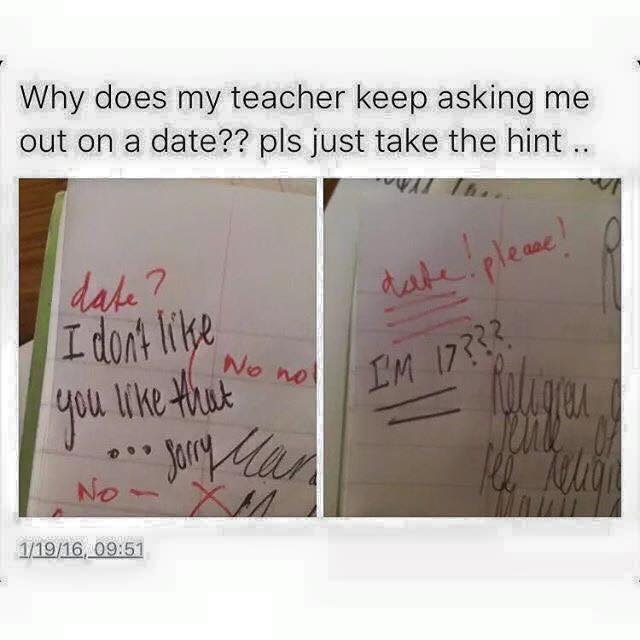 Why does my teacher keep asking me
out on a date?? pls just take the hint ..
date?
I don't like
No no!
you like that
... sorry
No - X
date! please!
I'M 17???
Religion
1/19/16, 09:51